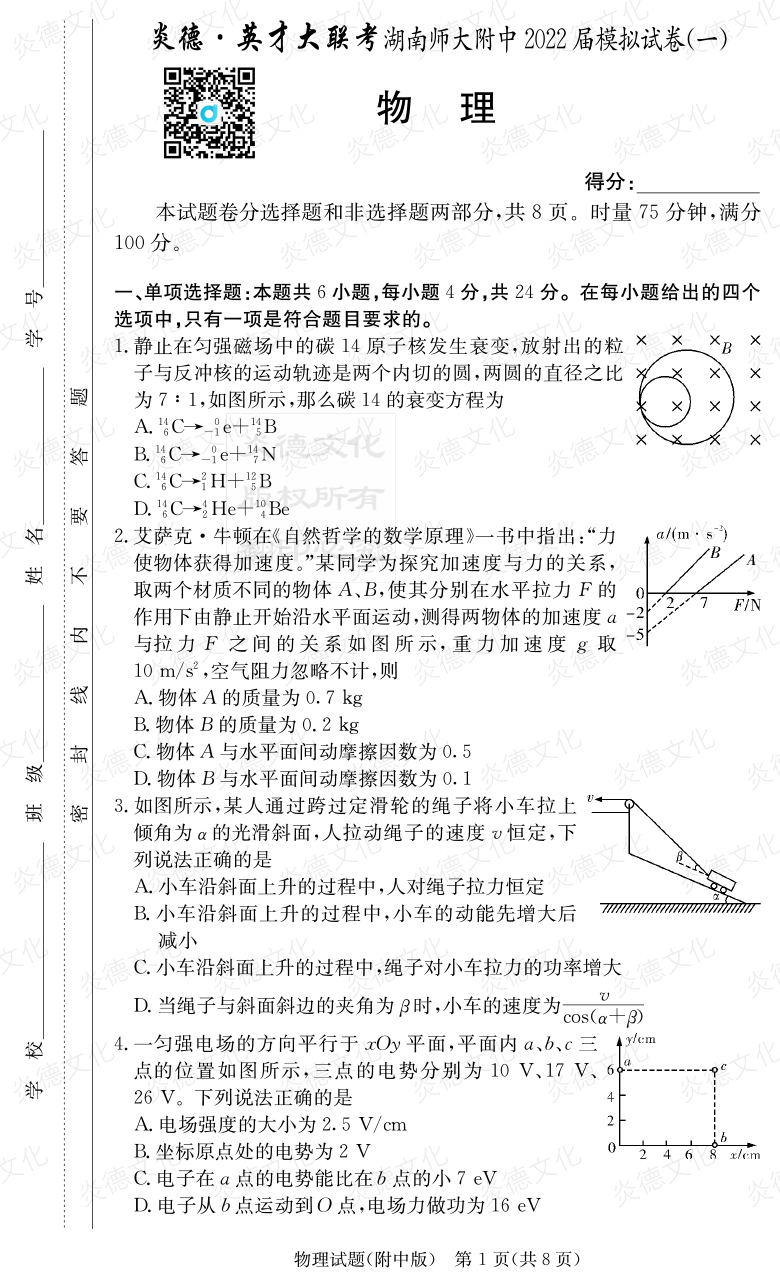 炎德·英才大联考湖南师大附中2022届模拟试卷(一)
物 理
得分:
本试题卷分选择题和非选择题两部分,共8页。时量75分钟,满分
100分。
一、单项选择题:本题共6小题,每小题4分,共24分。在每小题给出的四个
选项中,只有一项是符合题目要求的。
1. 静止在匀强磁场中的碳14原子核发生衰变,放射出的粒
子与反冲核的运动轨迹是两个内切的圆,两圆的直径之比
为7∶1,如图所示,那么碳14的衰变方程为
A. ¹⁴₆C→⁰₋₁e+¹⁴₅B
B. ¹⁴₆C→⁰₋₁e+¹⁴₇N
C. ¹⁴₆C→²₁H+¹²₅B
D. ¹⁴₆C→⁴₂He+¹⁰₄Be
B
2. 艾萨克·牛顿在《自然哲学的数学原理》一书中指出:“力
使物体获得加速度。”某同学为探究加速度与力的关系,
取两个材质不同的物体A、B,使其分别在水平拉力F的
作用下由静止开始沿水平面运动,测得两物体的加速度a
与拉力F之间的关系如图所示,重力加速度g取
10 m/s²,空气阻力忽略不计,则
A. 物体A的质量为0.7 kg
B. 物体B的质量为0.2 kg
C. 物体A与水平面间动摩擦因数为0.5
D. 物体B与水平面间动摩擦因数为0.1
a/(m·s⁻²)
B
A
0
2
7
F/N
-2
-5
3. 如图所示,某人通过跨过定滑轮的绳子将小车拉上
倾角为α的光滑斜面,人拉动绳子的速度v恒定,下
列说法正确的是
A. 小车沿斜面上升的过程中,人对绳子拉力恒定
B. 小车沿斜面上升的过程中,小车的动能先增大后
减小
C. 小车沿斜面上升的过程中,绳子对小车拉力的功率增大
D. 当绳子与斜面斜边的夹角为β时,小车的速度为v/cos(α+β)
v
β
α
4. 一匀强电场的方向平行于xOy平面,平面内a、b、c三
点的位置如图所示,三点的电势分别为10 V、17 V、
26 V。下列说法正确的是
A. 电场强度的大小为2.5 V/cm
B. 坐标原点处的电势为2 V
C. 电子在a点的电势能比在b点的小7 eV
D. 电子从b点运动到O点,电场力做功为16 eV
y/cm
a
c
6
4
2
b
0
2 4 6 8 x/cm
物理试题(附中版) 第1页(共8页)
学 校
班 级
姓 名
学 号
密 封 线 内 不 要 答 题
炎德文化
版权所有